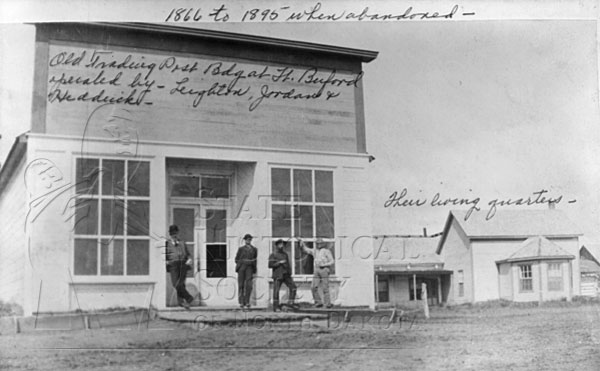 1866 to 1895 when abandoned -
Old Trading Post Bdg at Ft. Buford
operated by - Leighton, Jordan &
Hedderick -
Their living quarters -
STATE
HISTORICAL
SOCIETY
OF NORTH DAKOTA